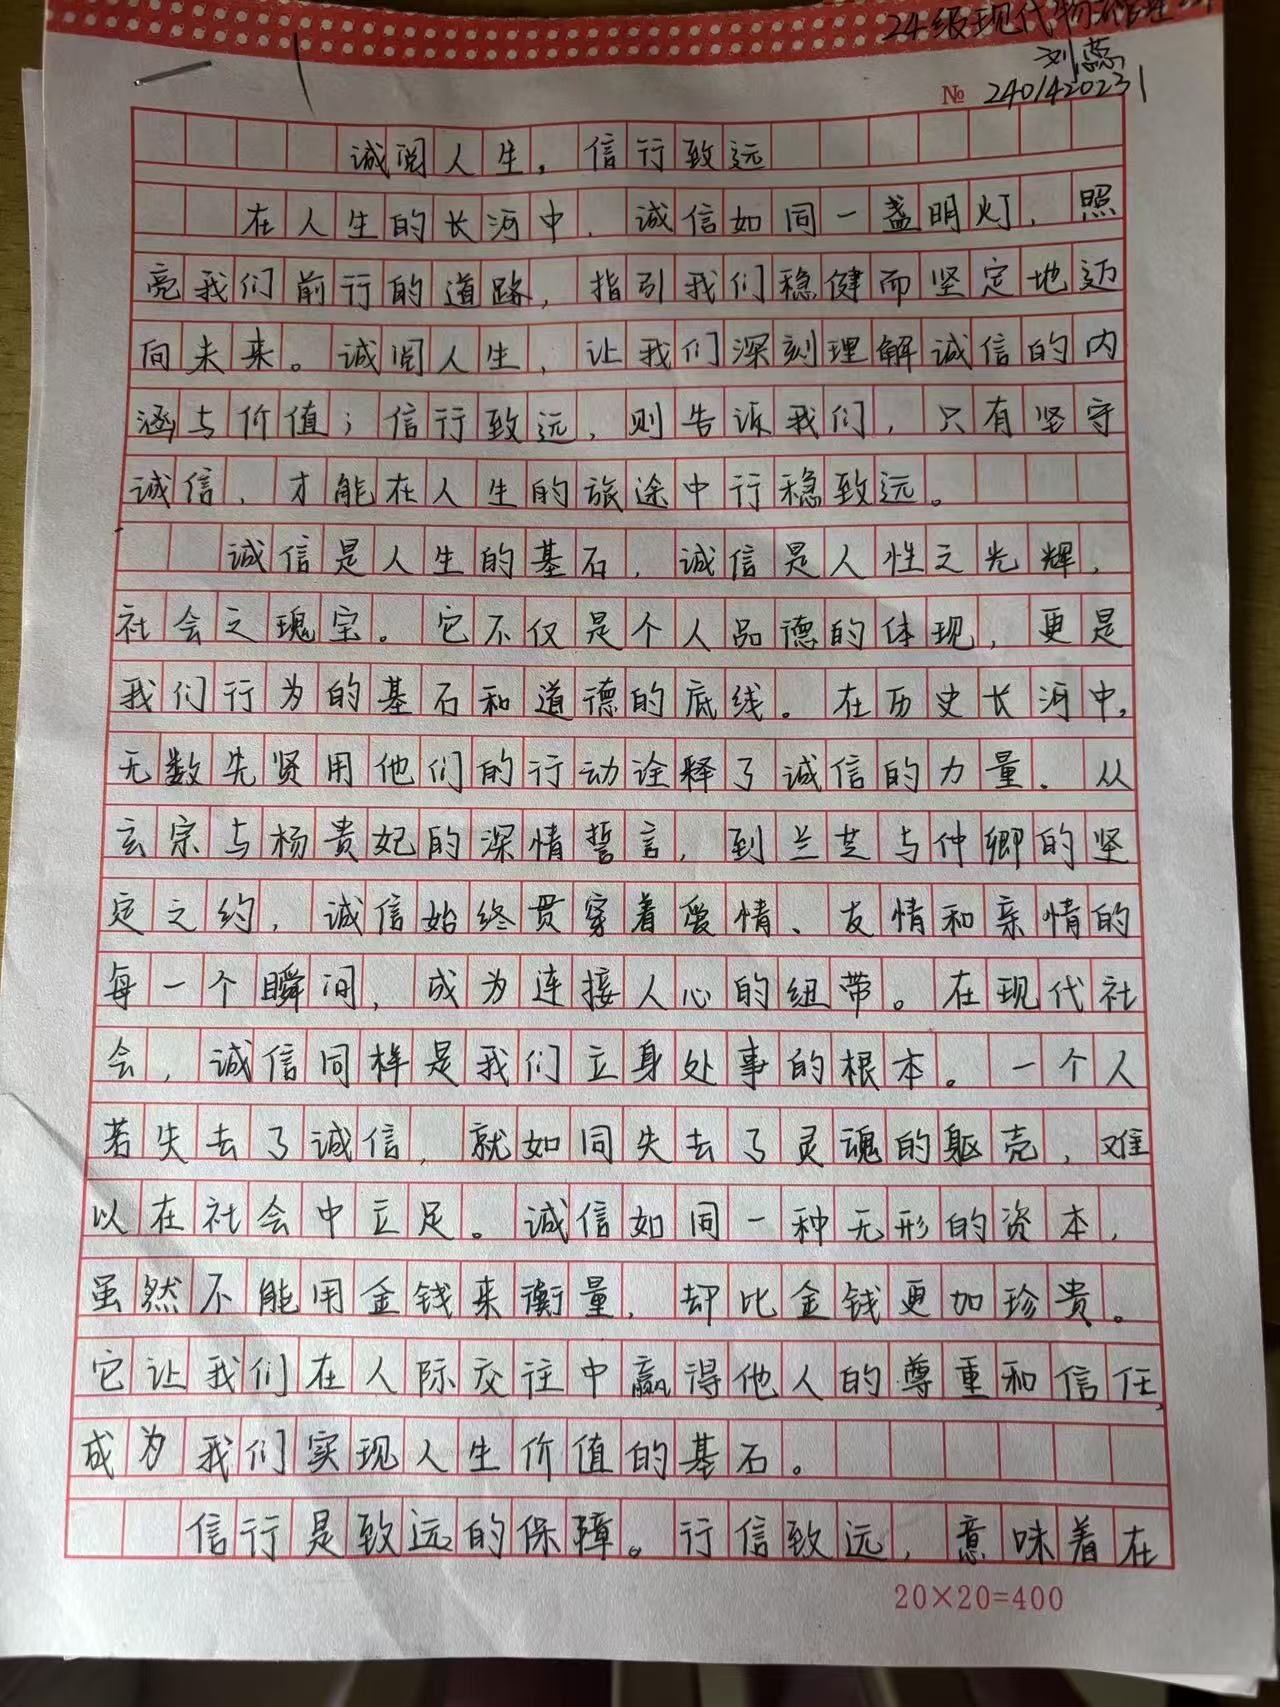 24级现代物流管理
刘蕊
№ 2401420231
诚阅人生，信行致远
在人生的长河中，诚信如同一盏明灯，照
亮我们前行的道路，指引我们稳健而坚定地迈
向未来。诚阅人生，让我们深刻理解诚信的内
涵与价值；信行致远，则告诉我们，只有坚守
诚信，才能在人生的旅途中行稳致远。
诚信是人生的基石，诚信是人性之光辉，
社会之瑰宝。它不仅是个人品德的体现，更是
我们行为的基石和道德的底线。在历史长河中，
无数先贤用他们的行动诠释了诚信的力量．从
玄宗与杨贵妃的深情誓言，到兰芝与仲卿的坚
定之约，诚信始终贯穿着爱情、友情和亲情的
每一个瞬间，成为连接人心的纽带。在现代社
会，诚信同样是我们立身处事的根本。一个人
若失去了诚信，就如同失去了灵魂的躯壳，难
以在社会中立足。诚信如同一种无形的资本，
虽然不能用金钱来衡量，却比金钱更加珍贵。
它让我们在人际交往中赢得他人的尊重和信任，
成为我们实现人生价值的基石。
信行是致远的保障。行信致远，意味着在
20×20=400